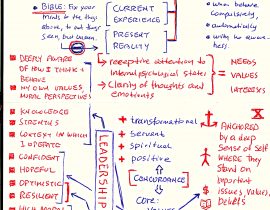 • BIBLE: Fix your
minds on the things
above, not on things
seen, but unseen
CURRENT
EXPERIENCE
PRESENT
REALITY
• when behave
compulsively,
automatically
DEEPLY AWARE
OF HOW I THINK +
BEHAVE
MY OWN VALUES
MORAL PERSPECTIVES
KNOWLEDGE
STRENGTHS
CONTEXT IN WHICH
I OPERATE
CONFIDENT
HOPEFUL
OPTIMISTIC
RESILIENT
HIGH MORAL
→ receptive attention to
internal psychological states
→ Clarity of thoughts and
emotions
NEEDS
VALUES
INTERESTS
LEADERSHIP
+ transformational
+ servant
+ spiritual
+ positive
CONCORDANCE
CORE:
VALUES
ANCHORED
by a deep
sense of self
WHERE THEY
STAND ON
important
issues, values,
beliefs